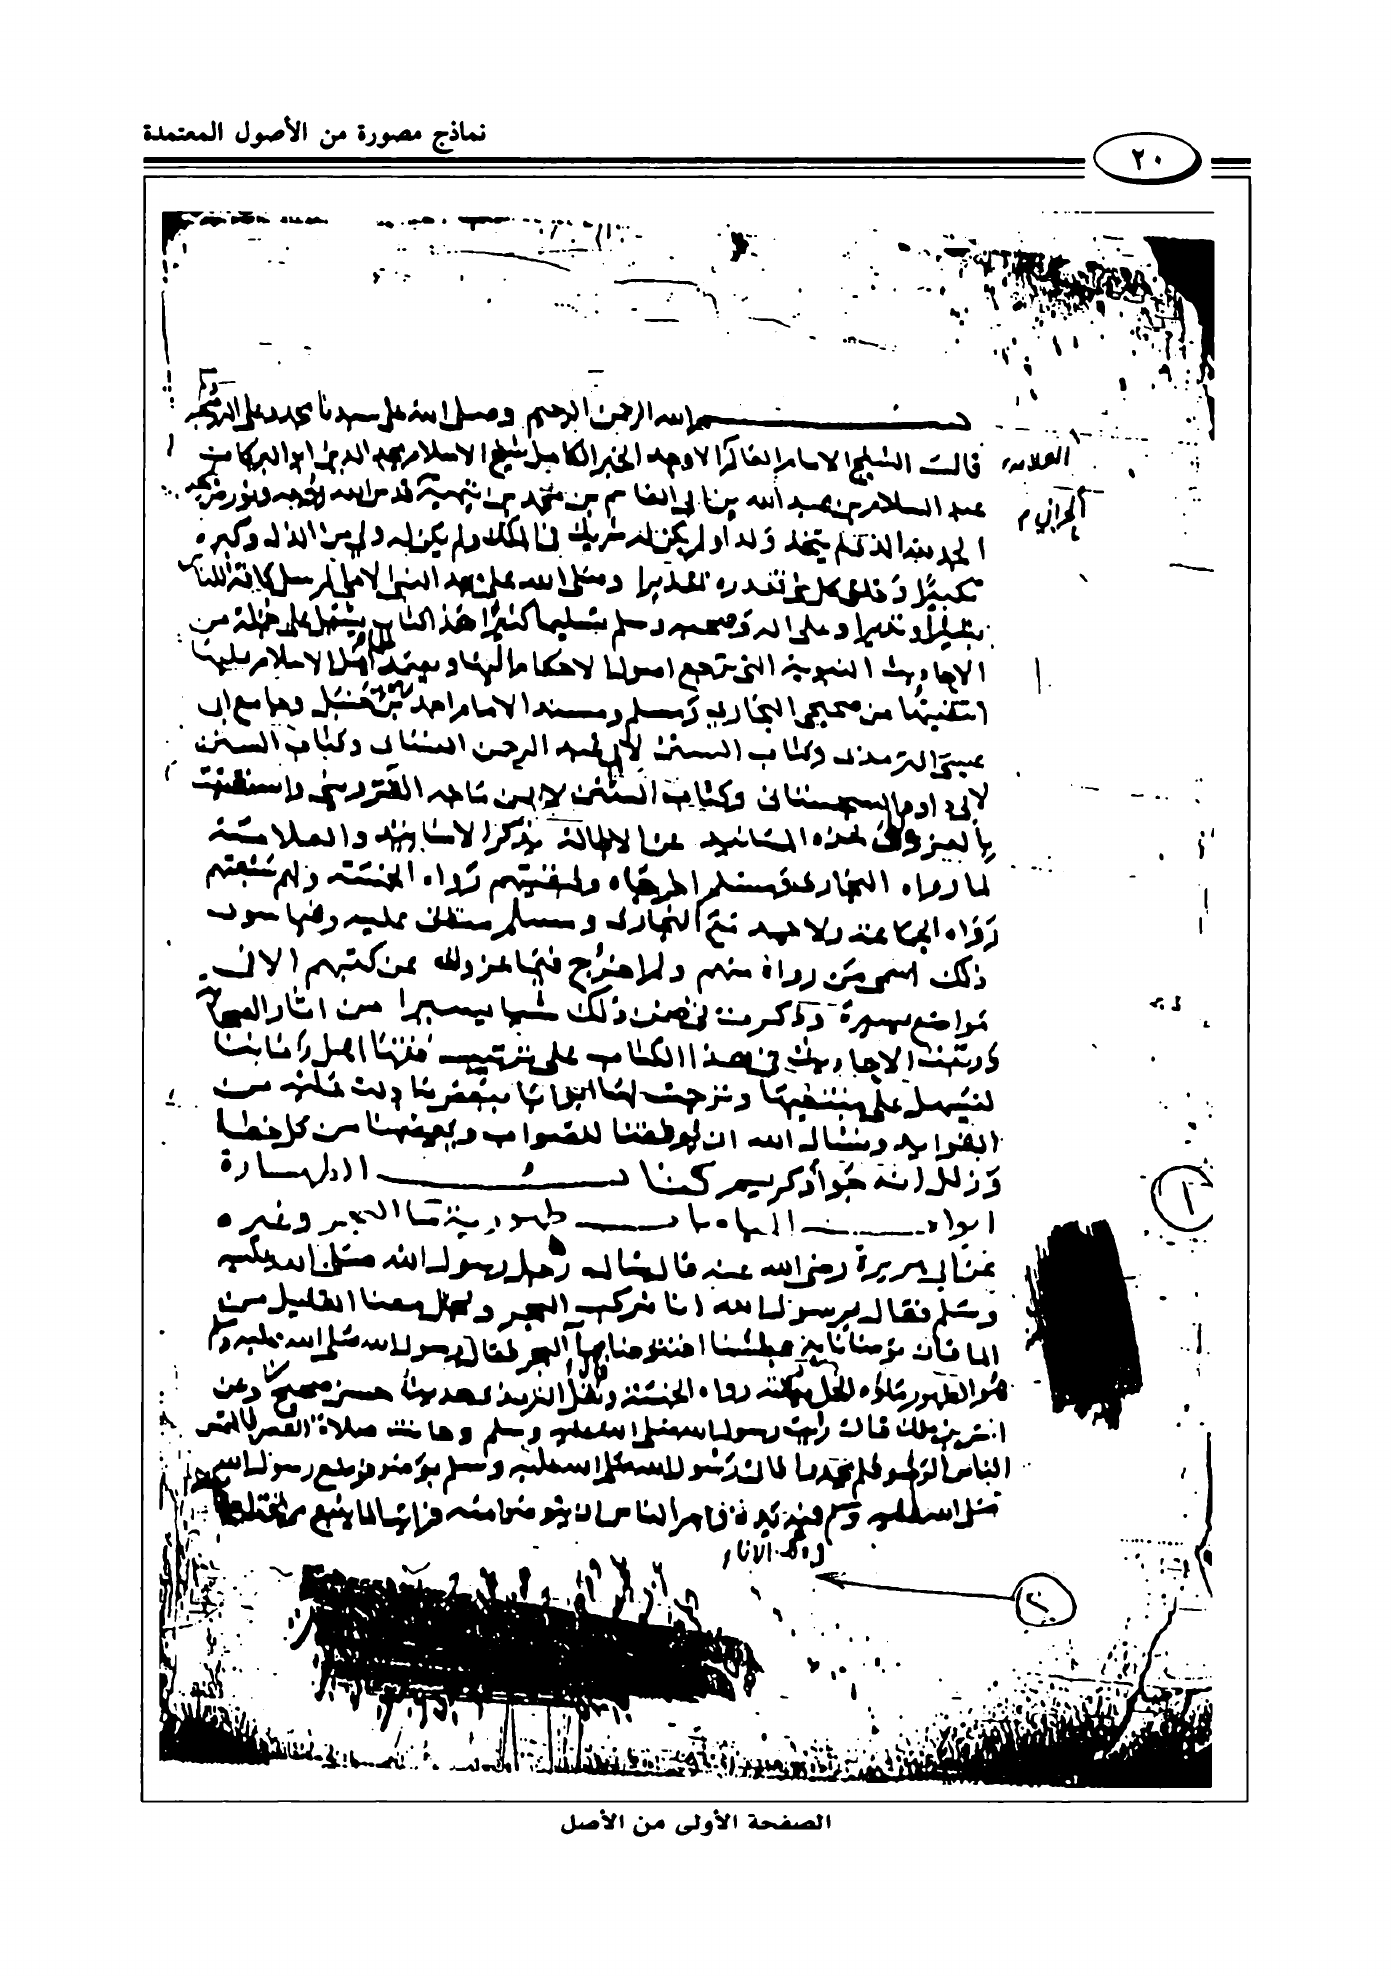 نماذج مصورة من الأصول المعتمدة
٢٠
بسم الله الرحمن الرحيم وصلى الله على سيدنا محمد وعلى اله وصحبه
قال الشيخ الامام العالم الاوحد الحبر الكامل شيخ الاسلام مجد الدين ابو البركات
العلامه
عبد السلام بن عبد الله بن ابي القاسم بن محمد بن تيمية قدس الله روحه ونور ضريحه
الحراني
الحمد لله الذي لم يتخذ ولدا ولم يكن له شريك في الملك ولم يكن له ولي من الذل وكبره
تكبيرا وخلق كل شي فقدره تقديرا وصلى الله على محمد النبي الامي المرسل كافة للناس
بشيرا ونذيرا وعلى اله وصحبه وسلم تسليما كثيرا هذا كتاب يشتمل على جملة من
الاحاديث النبوية التي ترجع اصول الاحكام اليها ويعتمد علماء اهل الاسلام عليها
انتقيتها من صحيحي البخاري ومسلم ومسند الامام احمد بن حنبل وجامع ابي
عيسى الترمذي وكتاب السنن لابي عبد الرحمن النسائي وكتاب السنن
لابي داود السجستاني وكتاب السنن لابن ماجه القزويني واستغنيت
بالعزو الى هذه المسانيد عن الاطالة بذكر الاسانيد والعلامة
لما رواه البخاري ومسلم اخرجاه ولبقيتهم رواه الخمسة ولهم سبعتهم
رواه الجماعة ولاحمد مع البخاري ومسلم متفق عليه وفيما سوى
ذلك اسمي من رواه منهم ولم اخرج فيما عزوته عن كتبهم الا في
مواضع يسيرة وذكرت في ضمن ذلك شيا يسيرا من اثار الصحابة
ورتبت الاحاديث في هذا الكتاب على ترتيب فقها اهل زماننا
لتسهل على مبتغيها وترجمت لها ابوابا ببعض ما دلت عليه من
الفوايد ونسال الله ان يوفقنا للصواب ويعصمنا من كل خطا
وزلل انه جواد كريم كتاب الطهارة
ابواب المياه باب طهورية ما البحر وغيره
عن ابي هريرة رضي الله عنه قال سال رجل رسول الله صلى الله عليه
وسلم فقال يرسول الله انا نركب البحر ونحمل معنا القليل من
الما فان توضانا به عطشنا افنتوضا بما البحر فقال رسول الله صلى الله عليه وسلم
هو الطهور ماؤه الحل ميتته رواه الخمسة وقال الترمذي هذا حديث حسن صحيح وعن
انس بن ملك قال رايت رسول الله صلى الله عليه وسلم وحانت صلاة العصر فالتمس
الناس الوضو فلم يجدوا فاتي رسول الله صلى الله عليه وسلم بوضو فوضع رسول الله
صلى الله عليه وسلم في يده فامر الناس ان يتوضوا منه فرايت الما ينبع من تحت
ذلك الانا
الصفحة الأولى من الأصل